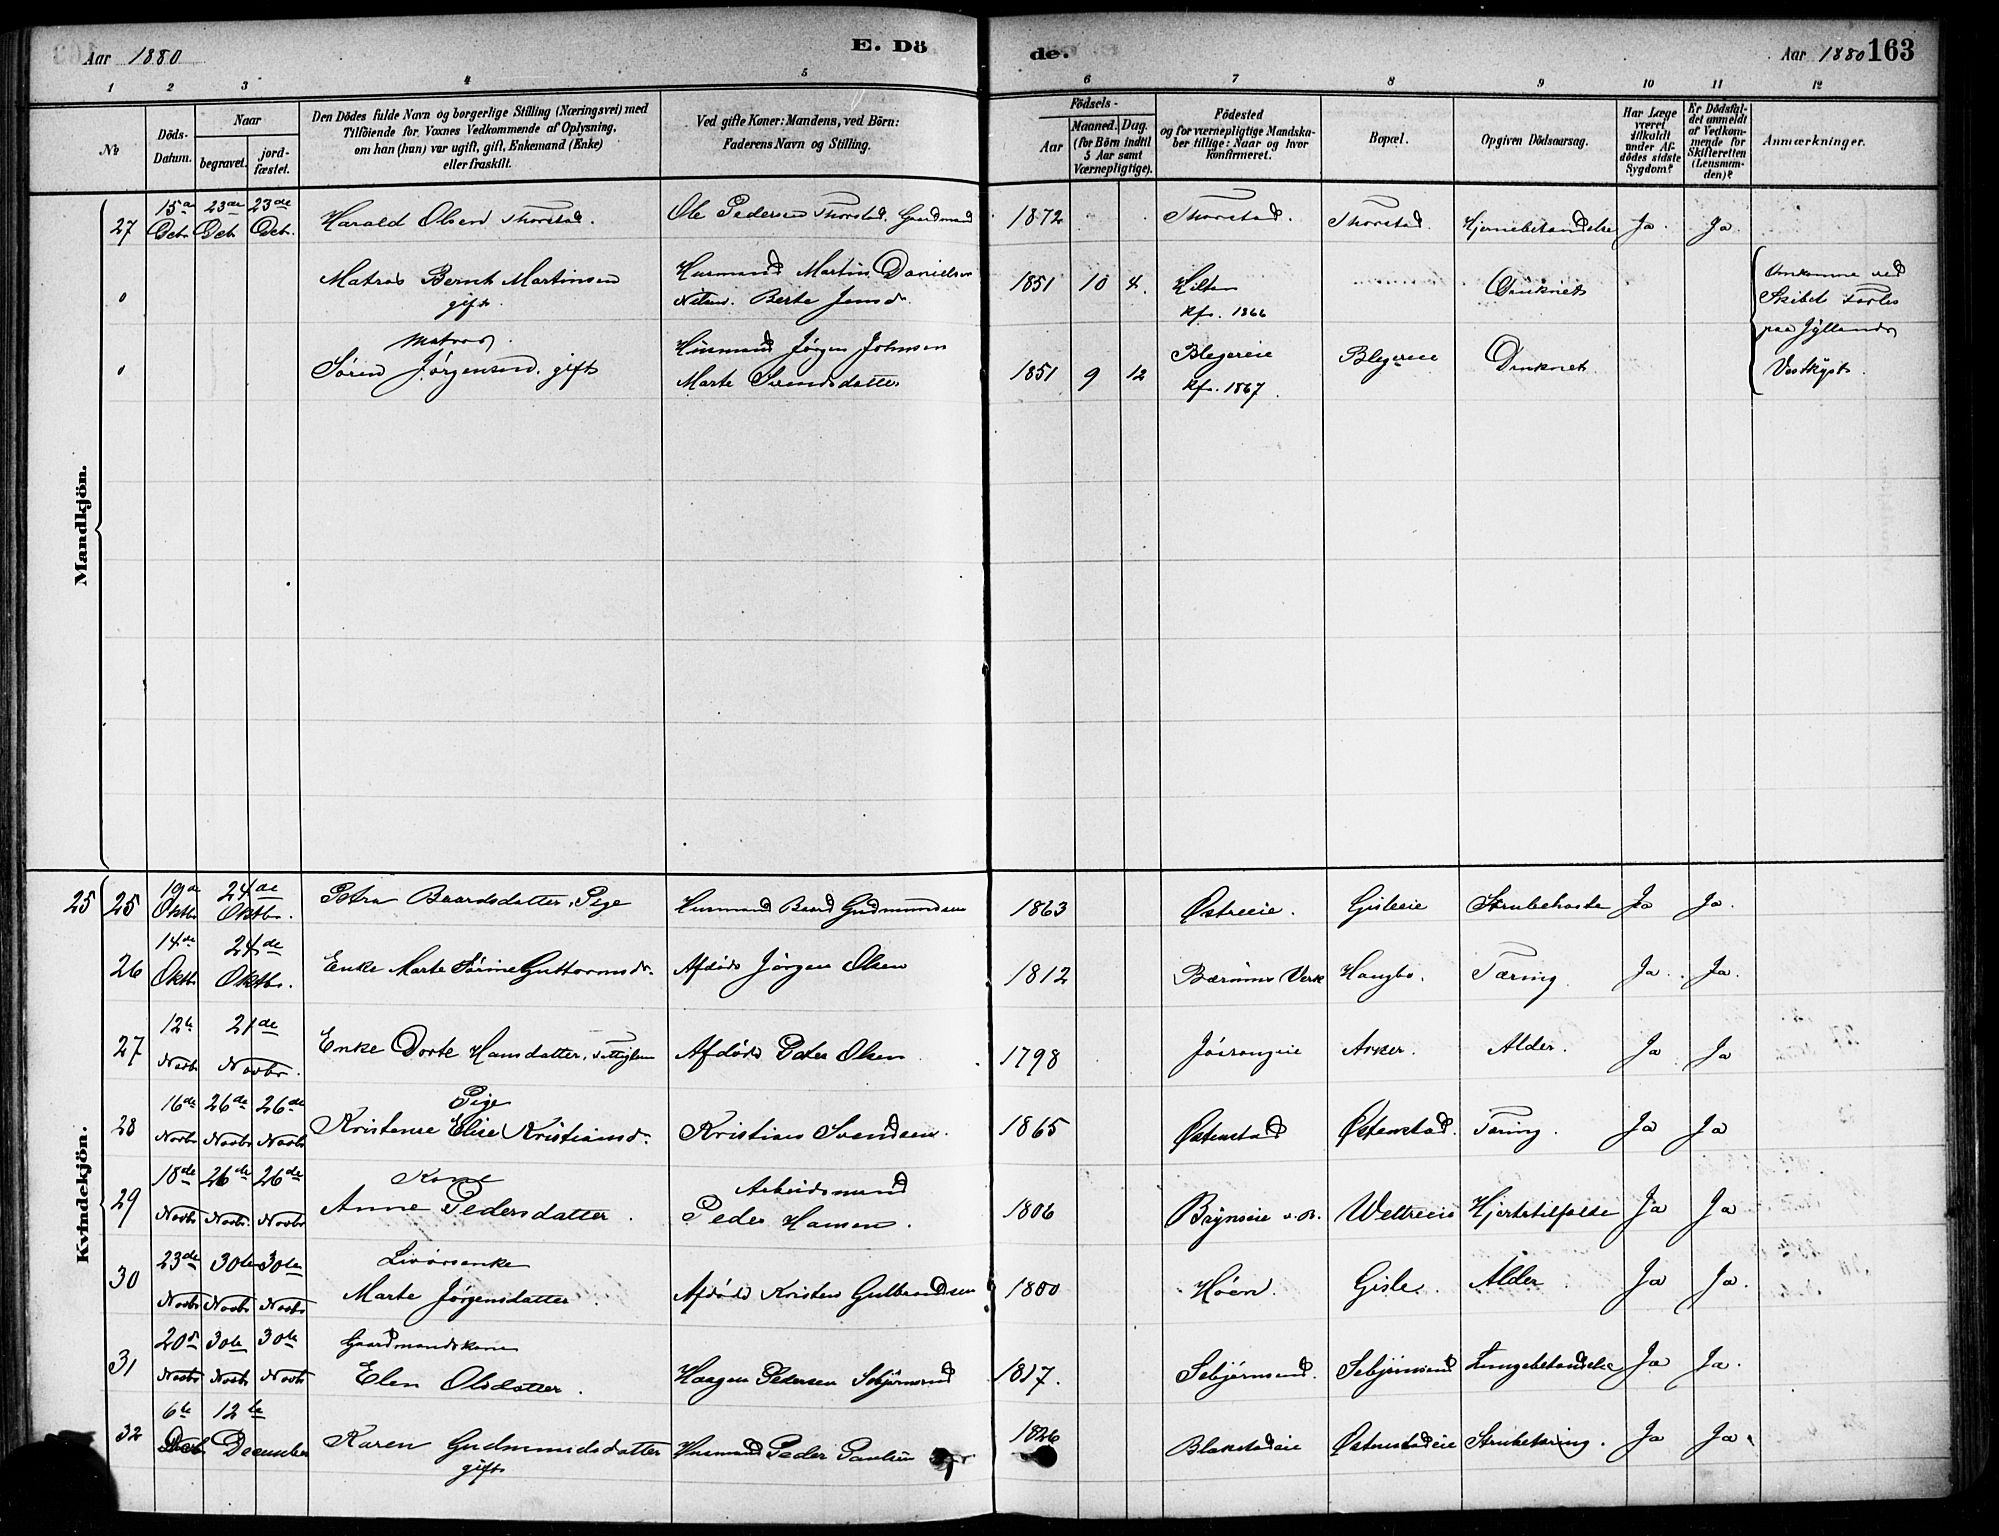 Aar 1880
E. Dö
de.
Aar 1880 163
1 2 3 4 5 6 7 8 9 10 11 12
№
Döds-
Datum.
Naar
begravet.
jord-
fæstet.
Den Dödes fulde Navn og borgerlige Stilling (Næringsvei) med
Tilföiende for Voxnes Vedkommende af Oplysning,
om han (hun) var ugift, gift, Enkemand (Enke)
eller fraskilt.
Ved gifte Koner: Mandens, ved Börn:
Faderens Navn og Stilling.
Födsels-
Aar
Maaned. Dag.
(for Börn indtil
5 Aar samt
Værnepligtige).
Födested
og for værnepligtige Mandska-
ber tillige: Naar og hvor
konfirmeret.
Bopæl.
Opgiven Dödsaarsag.
Har Læge
været
tilkaldt
under Af-
dödes sidste
Sygdom?
Er Dödsfal-
det anmeldt
af Vedkom-
mende for
Skifteretten
(Lensman-
den)?
Anmærkninger.
Mandkjön.
27 15de Dcbr 23de Dcbr 23de Dcbr. Harald Olsen Thorstad. Ole Pedersen Thorstad, Gaardmand 1872 Thorstad. Thorstad. Hjernebetændelse Ja. Ja
0 Matros Bernt Martinsen Husmand Martin Danielsen 1851 10 4. Druknet
gift. Berte Jensd. Kf. 1866
Omkomne ved
Skibet
paa Jyllands
Vestkyst.
0 Matros. Husmand Jørgen Johnsen Blegereie Blegereie Druknet
Søren Jørgensen, gift Marte Svendsdatter 1851 9 12 Kf. 1867.
Kvindekjön.
25 25 19de Oktbr 24de Oktbr. Petra Baardsdatter, Pige Husmand Baard Gudmundsen 1863 Østreeie. Gisleeie Strubehoste Ja Ja.
26 14de Oktbr 24de Oktbr. Enke Marte Sørine Guttormsdr. Afdøde Jørgen Olsen 1812 Bærums Verk Haugbo. Tæring. Ja. Ja.
27 12te Novbr 21de Novbr. Enke Dorte Hansdatter, Afdøde Peter Olsen 1798 Asker. Alder. Ja Ja
28 16de Novbr 26de Novbr 26de Novbr Pige
Kristense Elise Kristiansd. Kristian Svendsen. 1865 Østenstad Østenstad. Tæring. Ja Ja
29 18de Novbr 26de Novbr. 26de Novbr Kone Arbeidsmand
Anne Pedersdatter. Peder Hansen. 1806 Weltreeie Hjertetilfælde Ja Ja
30 23de Novbr 30te Novbr 30te Novbr
Marte Jørgensdatter. Afdøde Kristen Gulbrandsen 1800 Høen. Gisle. Alder Ja Ja.
31 20de Novbr 30te Novbr 30te Novbr Gaardmandskone
Elen Olsdatter. Haagen Pedersen Sebjørnsrud 1817. Sebjørnsrud. Sebjørnsrud Lungebetændelse Ja Ja.
32 6te Dcb 12te December Karen Gudmundsdatter Husmand Peder Paulsen 1826 Blakstadeie Østenstadeie Strubetæring. Ja Ja
gift